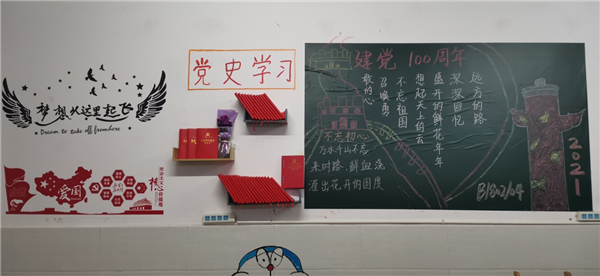 梦想从这里起飞
Dream to take off from here
爱国
党史学习
建党 100周年
远方的路
深深回忆
盛开的鲜花年年
想起天上的云
不忘祖国
召唤勇
敢的心
不忘初心
万水千山不忘
来时路,鲜血浇
灌出花开的国度
2021